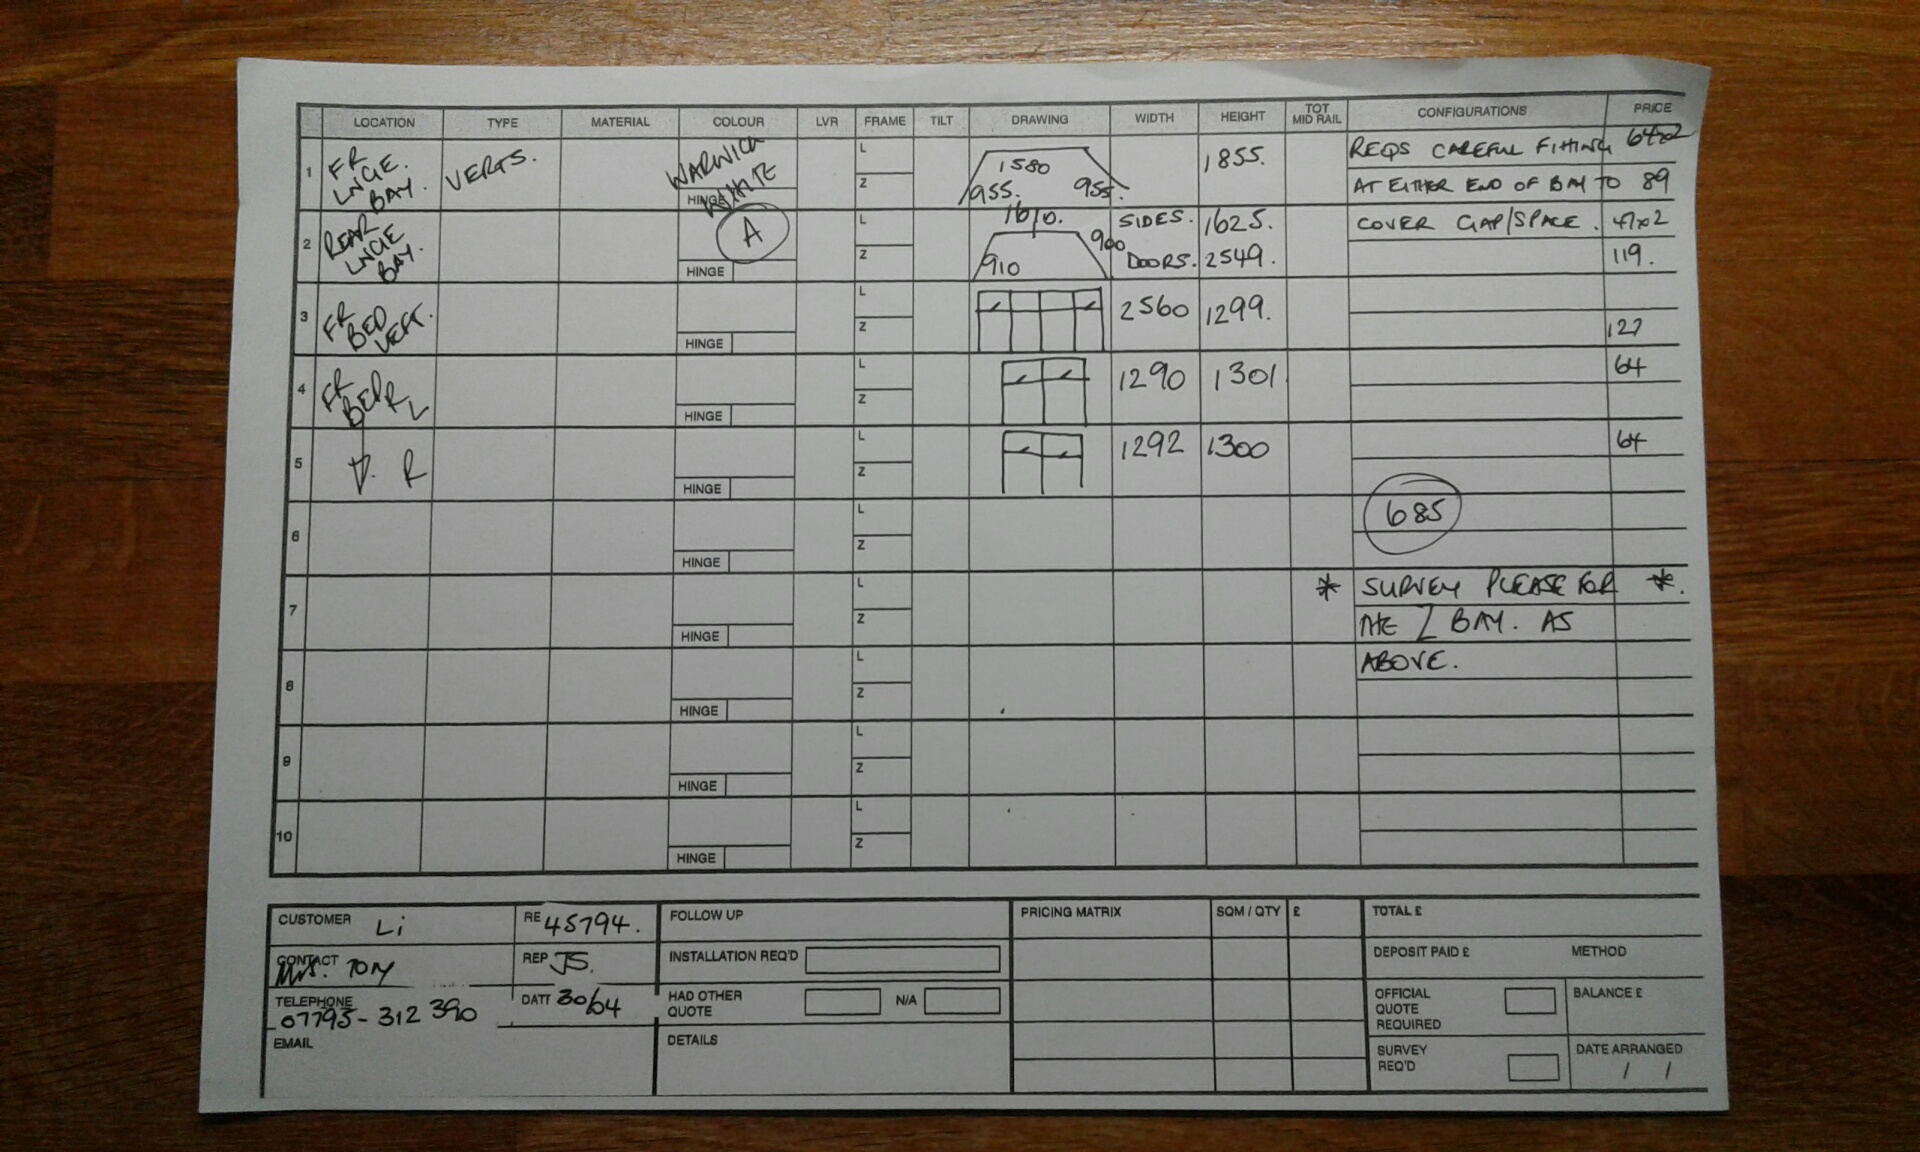 LOCATION TYPE MATERIAL COLOUR LVR FRAME TILT DRAWING WIDTH HEIGHT TOT MID RAIL CONFIGURATIONS PRICE
1 FR LNGE BAY. VERTS. WARWICK WHITE HINGE L Z 1580 955. 955. 1855. REQS CAREFUL FITTING 64x2
AT EITHER END OF BAY TO 89
2 REAR LNGE BAY. A HINGE L Z 1610. 910 900 SIDES. 1625. COVER GAP/SPACE. 47x2
DOORS. 2549. 119.
3 FR BED VERT. HINGE L Z 2560 1299. 127
4 FR BEDR L HINGE L Z 1290 1301 64
5 R HINGE L Z 1292 1300 64
6 HINGE L Z 685
7 HINGE L Z * SURVEY PLEASE FOR *.
THE 2 BAY. AS
8 HINGE L Z ABOVE.
9 HINGE L Z
10 HINGE L Z
CUSTOMER Li
RE 45794.
CONTACT TONY
REP JS.
TELEPHONE 07795-312 390
DATE 30/04
EMAIL
FOLLOW UP
INSTALLATION REQ'D
HAD OTHER QUOTE N/A
DETAILS
PRICING MATRIX SQM / QTY £
TOTAL £
DEPOSIT PAID £ METHOD
OFFICIAL QUOTE REQUIRED
BALANCE £
SURVEY REQ'D
DATE ARRANGED
/ /